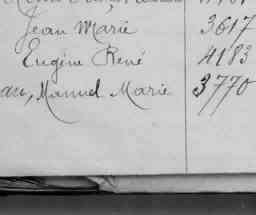 Jean Marie 3617
Eugène René 4183
Manuel Marie 3770